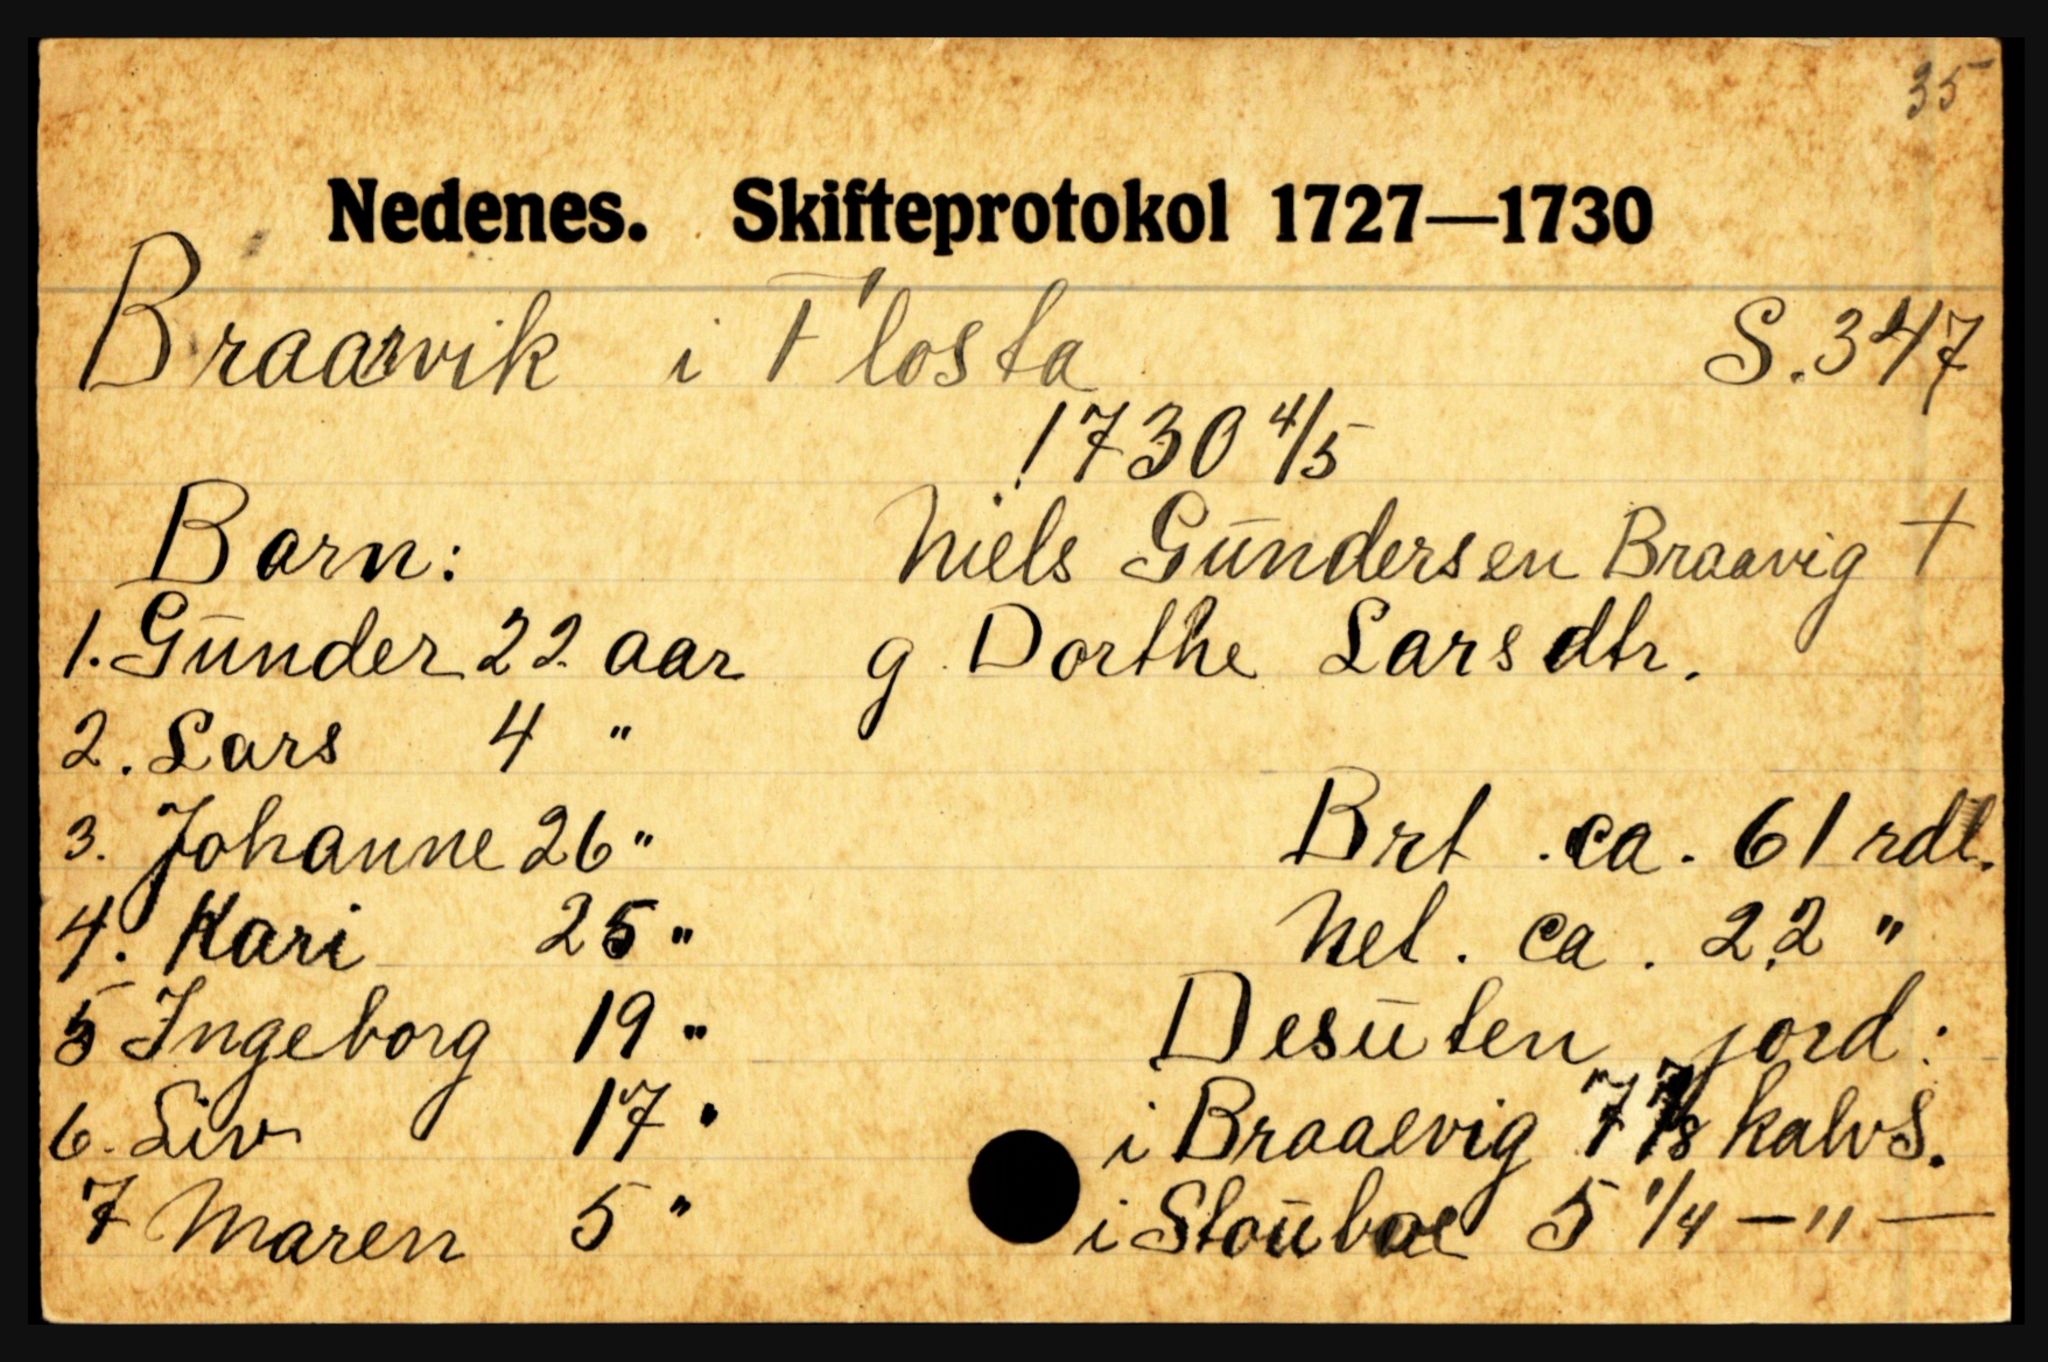 35
Nedenes. Skifteprotokol 1727—1730
Braarvik i Flosta S. 347
1730 4/5
Barn: Niels Gundersen Braavig †
1. Gunder 22 aar g. Dorthe Larsdtr.
2. Lars 4 "
3. Johanne 26 " Brt. ca. 61 rdl.
4. Kari 25 " Net. ca. 22 "
5 Ingeborg 19 " Desuten jord:
6. Liv 17 " i Braaevig 7 7/8 kalvs.
7 Maren 5 " i Stouboe 5 1/4 — " —